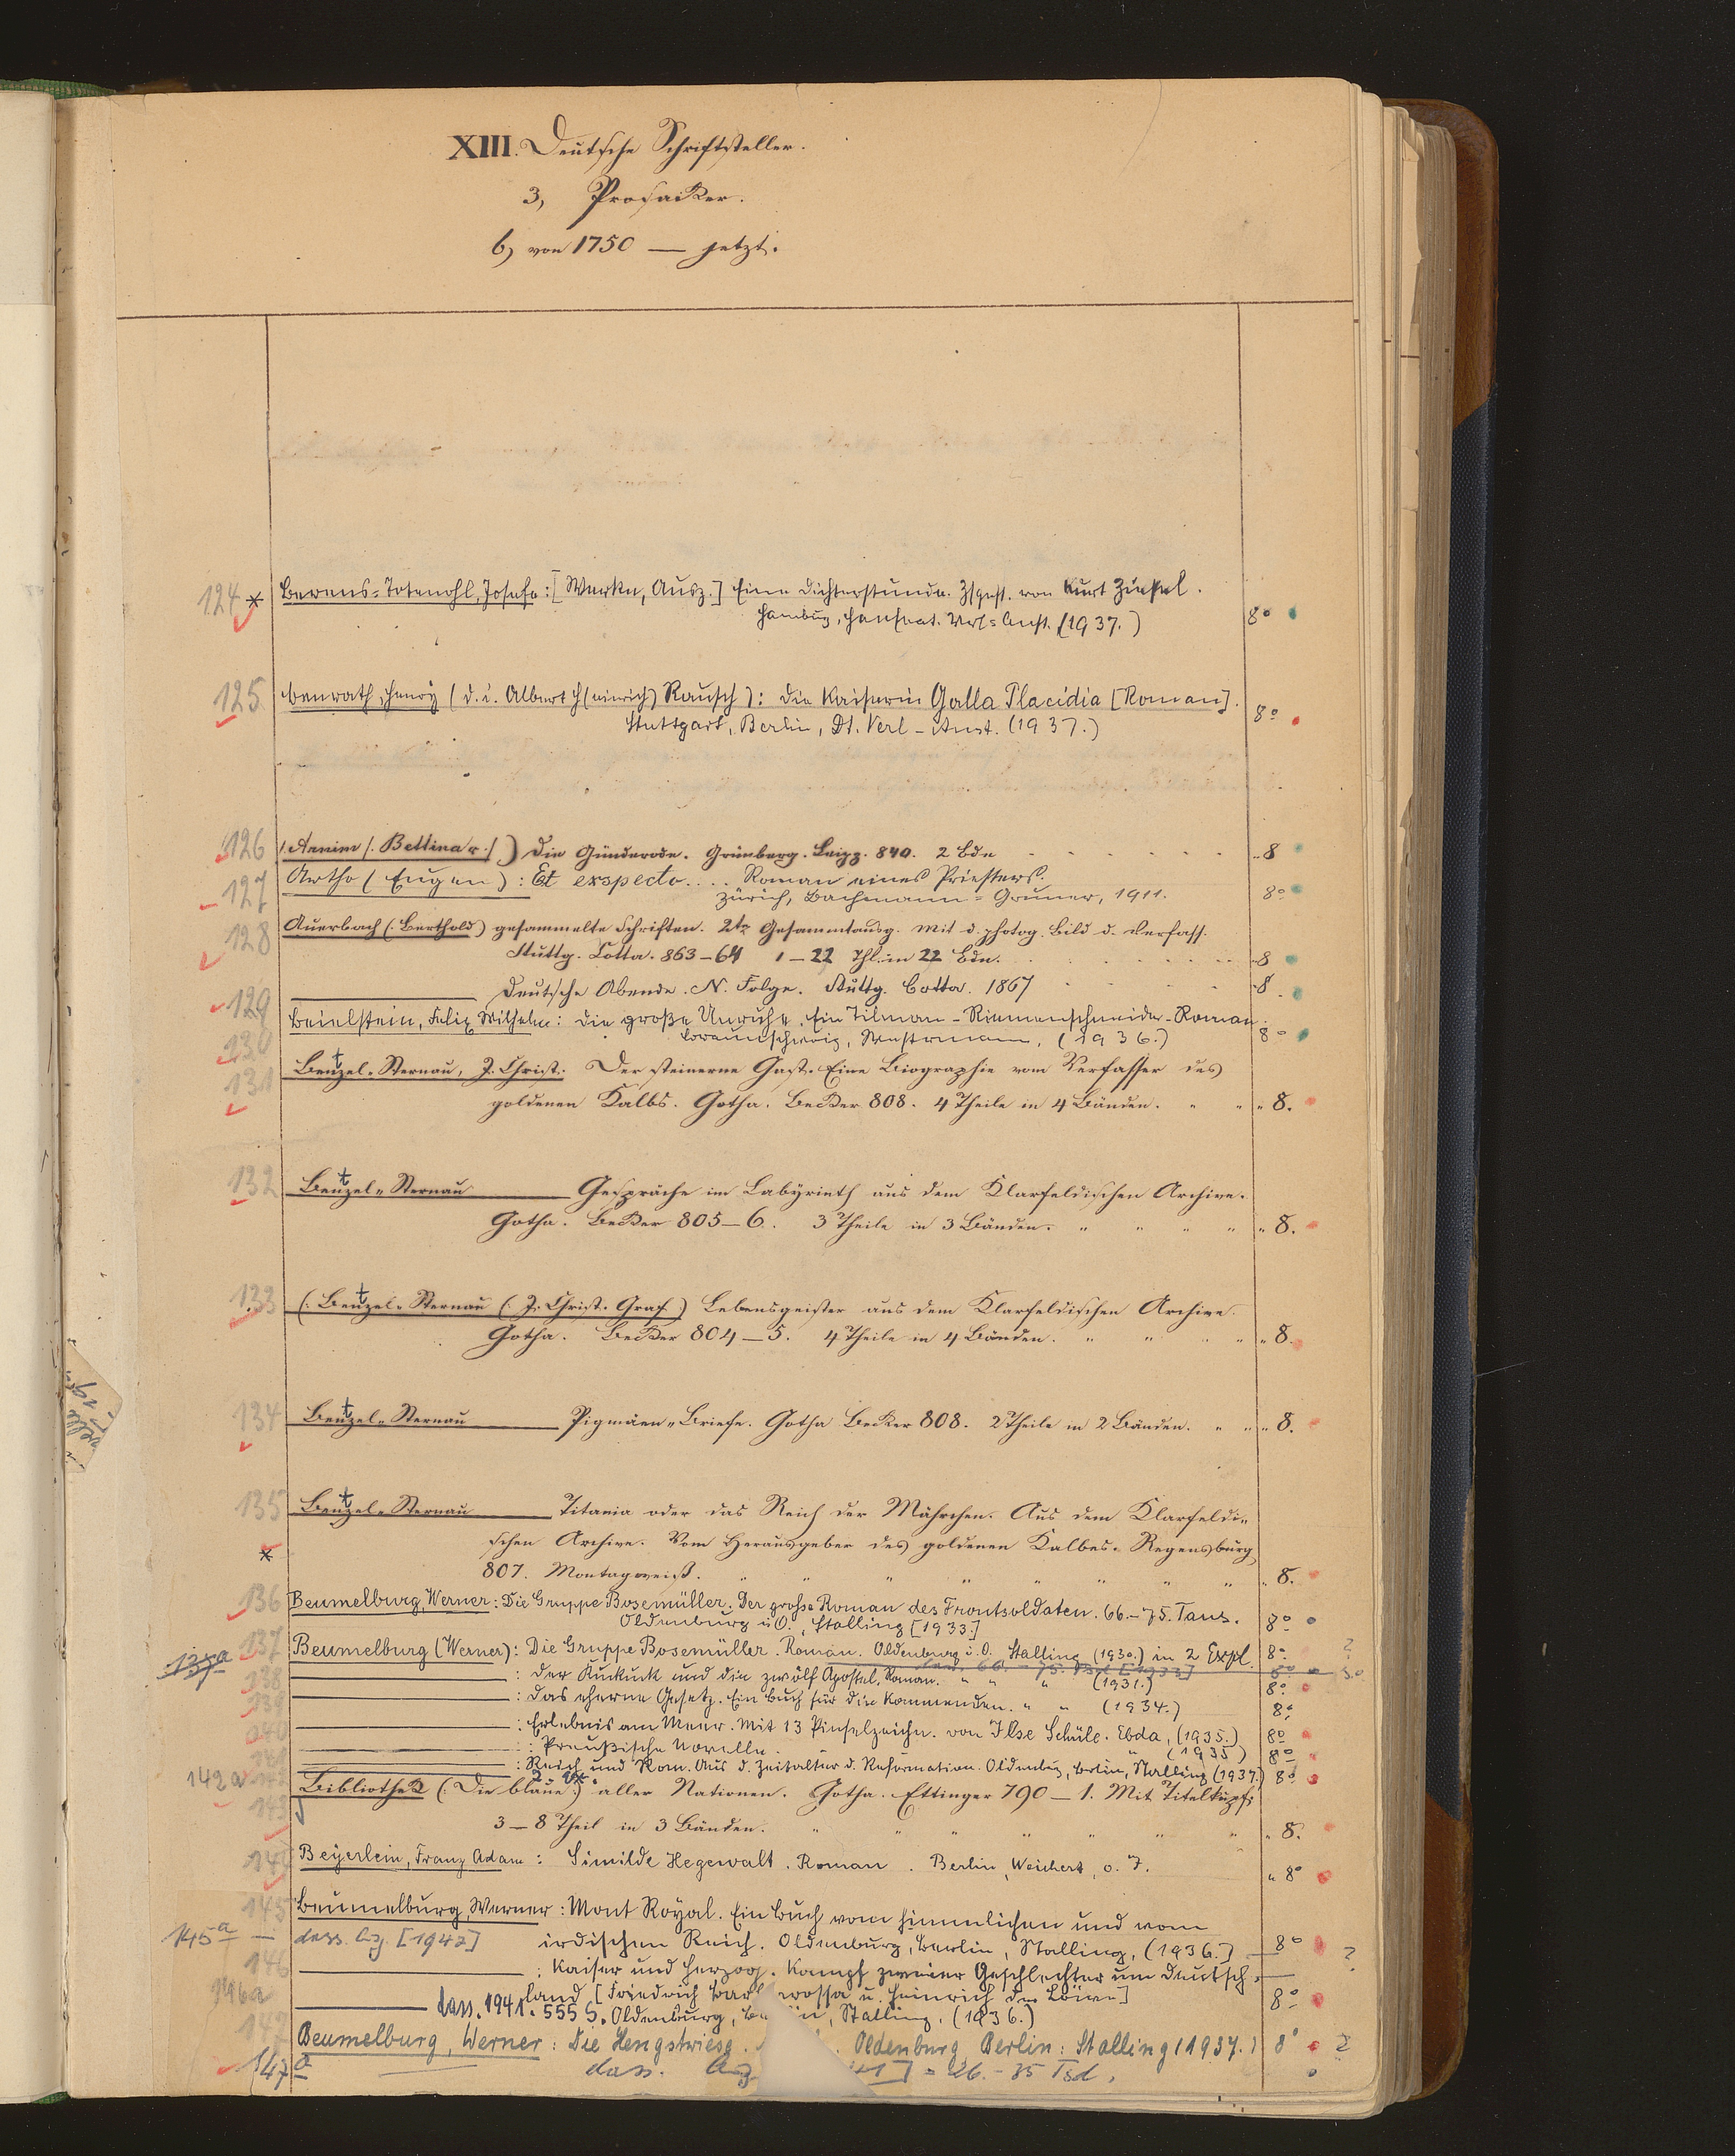 XIII. Deutsche Schriftsteller.
3, Prosaiker.
b, von 1750 — jetzt.
124 * Berens-Totenohl, Josefa: [Werke, Ausz.] Eine Dichterstunde. Zsgest. von Kurt Ziesel.
Hamburg, Hanseat. Verl. Anst. (1937.) 8°
125 Benrath, Henry (d. i. Albert H(einrich) Rausch): Die Kaiserin Galla Placidia [Roman].
Stuttgart, Berlin, Dt. Verl-Anst. (1937.) 8°
126 (Arnim (. Bettina v.)) Die Günderode. Grünberg. Leipz. 840. 2 Bde 8
127 Artho (Eugen): Et exspecto.... Roman eines Priesters.
Zürich, Bachmann-Gruner, 1911. 8°
128 Auerbach (. Berthold) gesammelte Schriften. 2te Gesammtausg. Mit d. photog. Bild d. Verfass.
Stuttg. Cotta. 863–64 1–22 Thl. in 22 Bdn. 8
129 Deutsche Abende. N. Folge. Stuttg. Cotta. 1867 8
130 Beielstein, Felix Wilhelm: Die große Unruhe. Ein Tilman-Riemenschneider-Roman.
Braunschweig, Westermann, (1936.) 8°
131 Bentzel-Sternau, J. Christ. Der steinerne Gast. Eine Biographie vom Verfasser des
goldenen Kalbs. Gotha. Becker 808. 4 Theile in 4 Bänden. " " " 8.
132 Bentzel-Sternau Gespräche im Labyrinth aus dem Klarfeldischen Archive.
Gotha. Becker 805–6. 3 Theile in 3 Bänden. " " " " " 8.
133 (. Bentzel-Sternau (. J. Christ. Graf.) Lebensgeister aus dem Klarfeldischen Archive.
Gotha. Becker 804–5. 4 Theile in 4 Bänden. " " " " " 8.
134 Bentzel-Sternau Pigmäen-Briefe. Gotha Becker 808. 2 Theile in 2 Bänden. " " " 8.
135 Bentzel-Sternau Titania oder das Reich der Mährchen. Aus dem Klarfeldi-
* schen Archive. Vom Herausgeber des goldenen Kalbes. Regensburg
807. Montagweiß. " " " " " " " " 8.
136 Beumelburg, Werner: Die Gruppe Bosemüller. Der große Roman des Frontsoldaten. 66.–75. Taus.
Oldenburg i. O., Stalling [1933.] 8°
137 Beumelburg (Werner): Die Gruppe Bosemüller. Roman. Oldenburg i. O. Stalling (1930.) in 2 Expl. 8° ?
137a 66.–75. Tsd. [1933] 8°
138 : Der Kuckuck und die zwölf Apostel. Roman. " " " (1931.) 8°
139 : Das eherne Gesetz. Ein Buch für die Kommenden. " " (1934.) 8°
140 : Erlebnis am Meer. Mit 13 Pinselzeichn. von Ilse Schüle. Ebda, (1935.) 8°
141 : Preußische Novelle. " (1935) 8°
142 : Reich und Rom. Aus d. Zeitalter d. Reformation. Oldenburg, Berlin, Stalling (1937.) 8°
142a 2 Ex.
143 Bibliothek (. Die blaue.) aller Nationen. Gotha. Ettinger 790–1. Mit Titelkupf.
3–8 Theil in 3 Bänden. " " " " " " " " 8.
144 Beyerlein, Franz Adam: Similde Hegewalt. Roman. Berlin, Weichert, o. J. " 8°
145 Beumelburg, Werner: Mont Royal. Ein Buch vom himmlischen und vom
irdischen Reich. Oldenburg, Berlin, Stalling, (1936.) 8° ?
145a — dass. Ausg. [1942]
146 : Kaiser und Herzog. Kampf zweier Geschlechter um Deutsch-
land [Friedrich Barbarossa u. Heinrich der Löwe]
Oldenburg, Stalling, (1936.) 8°
146a dass. 1941. 555 S.
147 Beumelburg, Werner: Die Hengstwiese. Oldenburg, Berlin: Stalling (1937.) 8° ?
147a dass. = 26.–35 Tsd.